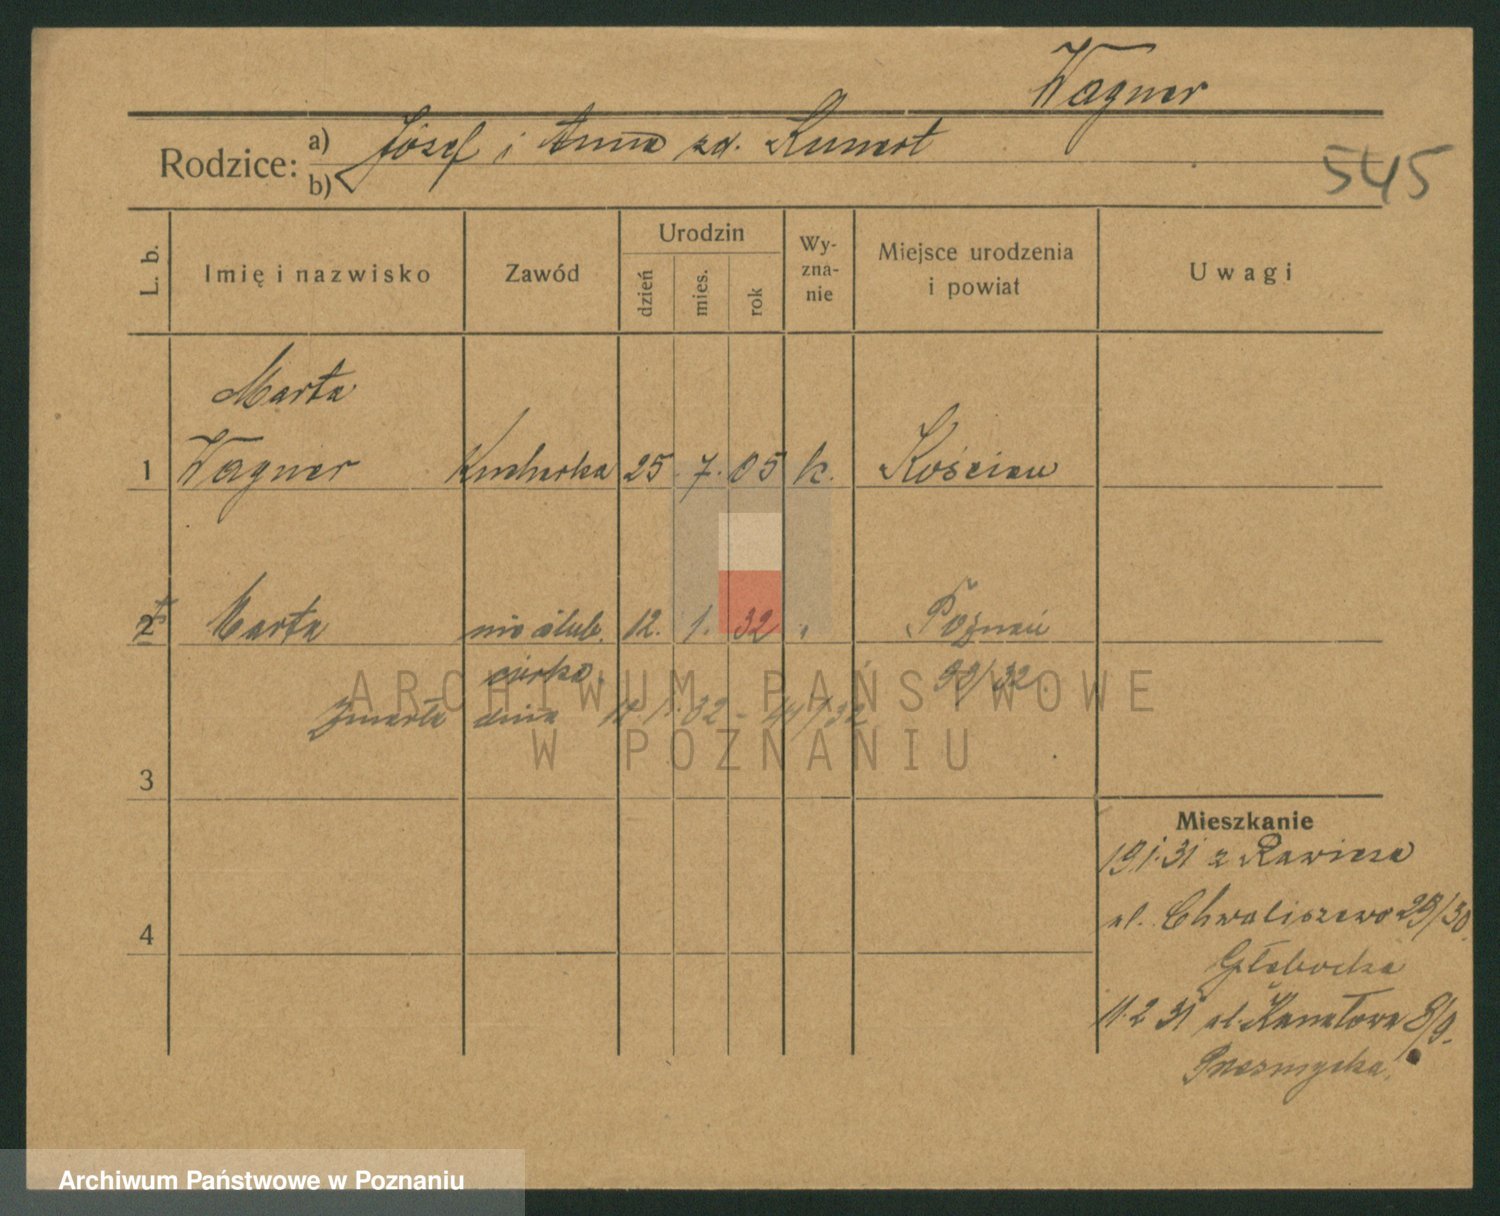 Wagner
Rodzice: a) Józef i Anna zd. Kunert
b)
545
L. b.
Imię i nazwisko
Zawód
Urodzin
dzień
mies.
rok
Wy-
zna-
nie
Miejsce urodzenia
i powiat
Uwagi
Marta
1 Wagner Kucharka 25. 7. 05 k. Kościan
2 Marta nieślub. 12. 1. 32 Poznań
córka. 92/32.
Zmarła dnia 12.1.32 - 44/32
3
4
Mieszkanie
19 1.31 z Rawicza
ul. Chwaliszewo 29/30
Głębocka
11.2 31 ul. Kanałowa 8/9.
Przesmycka.
ARCHIWUM PAŃSTWOWE
W POZNANIU
Archiwum Państwowe w Poznaniu